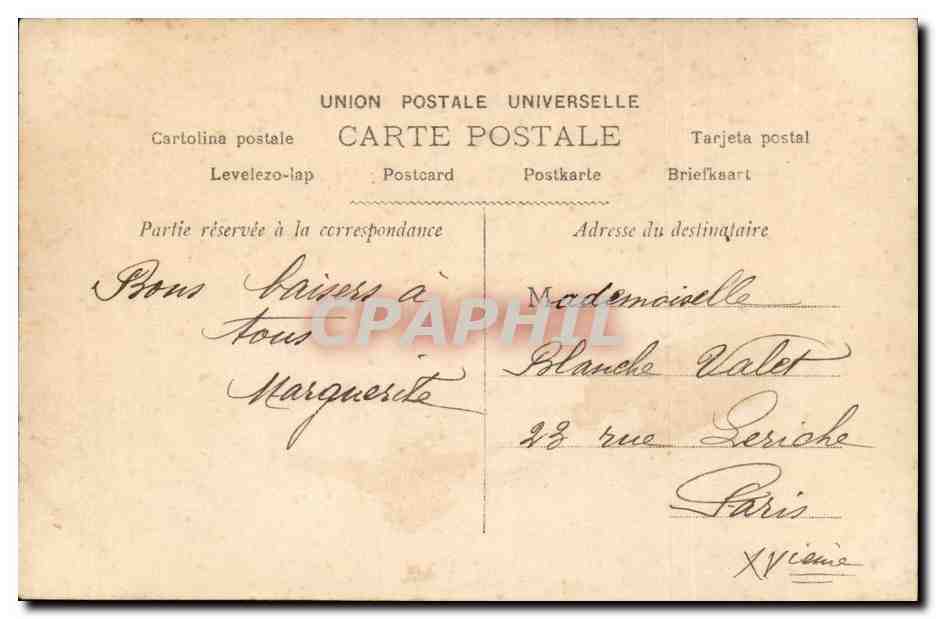 UNION POSTALE UNIVERSELLE
Cartolina postale CARTE POSTALE Tarjeta postal
Levelezo-lap Postcard Postkarte Briefkaart
Partie réservée à la correspondance
Bons baisers à
tous
Marguerite
Adresse du destinataire
Mademoiselle
Blanche Valet
23 rue Leriche
Paris
XVieme
CPAPHIL